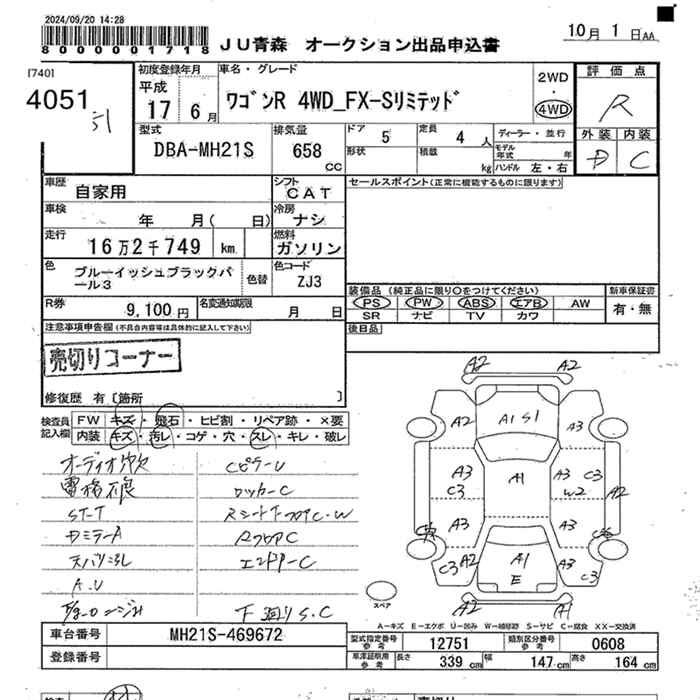 2024/09/20 14:28
80000001718
JU青森 オークション出品申込書
10月 1日AA
[740]
4051
初度登録年月
平成
17 6月
車名・グレード
ワゴンR 4WD_FX-Sリミテッド
2WD
・
4WD
評価点
R
外装 内装
D C
型式
DBA-MH21S
排気量
658
CC
ドア 5
定員 4 人
形状
積載 kg
ディーラー・並行
モデル年式 年
ハンドル 左・右
車歴
自家用
シフト
CAT
セールスポイント(正常に機能するものに限ります)
車検
年 月( 日)
冷房
ナシ
走行
16万2千749 km
燃料
ガソリン
色
ブルーイッシュブラックパール3
色替
色コード
ZJ3
装備品(純正品に限り○をつけてください)
新車保証書
PS PW ABS エアB AW
SR ナビ TV カワ
有・無
R券
9,100円
名変通知期限
月 日
後日品
注意事項申告欄(不具合内容等は具体的に記入して下さい)
売切りコーナー
修復歴 有[箇所 ]
検査員記入欄
FW キズ・飛石・ヒビ割・リペア跡・×要
内装 キズ・汚レ・コゲ・穴・スレ・キレ・破レ
オーディオ欠
電格不良
ST-T
DミラーA
A.U
CピラーU
ロッカーC
RフロアC
下廻りS.C
A2 A2
A2 A1 S1 A3
A3 C3 A1 A3 C3
W2 A2
A3 A3
C3 A2 A1 E A3 C3
A2 A1
スペア
A-キズ E-エクボ U-凹み W-補修跡 S-サビ C-腐食 XX-交換済
車台番号
MH21S-469672
登録番号
型式指定番号
参考
12751
類別区分番号
参考
0608
車庫証明用
参考
長さ 339 cm
幅 147 cm
高さ 164 cm